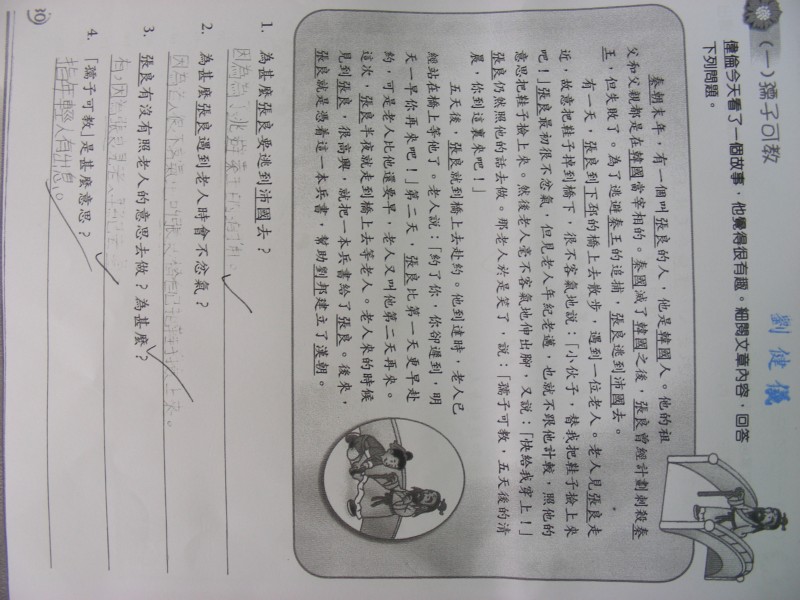 (一) 孺子可教
劉健儀
偉倫今天看了一個故事，他覺得很有趣。細閱文章內容，回答
下列問題。
秦朝末年，有一個叫張良的人，他是韓國人。他的祖
父和父親都是在韓國當宰相的。秦國滅了韓國之後，張良曾經計劃刺殺秦
王，但失敗了。為了逃避秦王的追捕，張良逃到沛國去。
有一天，張良到下邳的橋上去散步，遇到一位老人。老人見張良走
近，故意把鞋子掉到橋下，很不客氣地說：「小伙子，替我把鞋子撿上來
吧！」張良最初很不忿氣，但見老人年紀老邁，也就不跟他計較，照他的
意思把鞋子撿上來。然後老人毫不客氣地伸出腳，又說：「快給我穿上！」
張良仍然照他的話去做。那老人於是笑了，說：「孺子可教，五天後的清
晨，你到這裏來吧！」
五天後，張良就到橋上去赴約。他到達時，老人已
經站在橋上等他了。老人說：「約了你，你卻遲到，明
天一早你再來吧！」第二天，張良比第一天更早赴
約，可是老人比他還要早。老人又叫他第二天再來。
這次，張良半夜就走到橋上去等老人。老人來的時候
見到張良，很高興，就把一本兵書給了張良。後來，
張良就是憑着這一本兵書，幫助劉邦建立了漢朝。
1. 為甚麼張良要逃到沛國去？
因為為了逃避秦王的追捕。
2. 為甚麼張良遇到老人時會不忿氣？
3. 張良有沒有照老人的意思去做？為甚麼？
4. 「孺子可教」是甚麼意思？
指年輕人有出息。
30